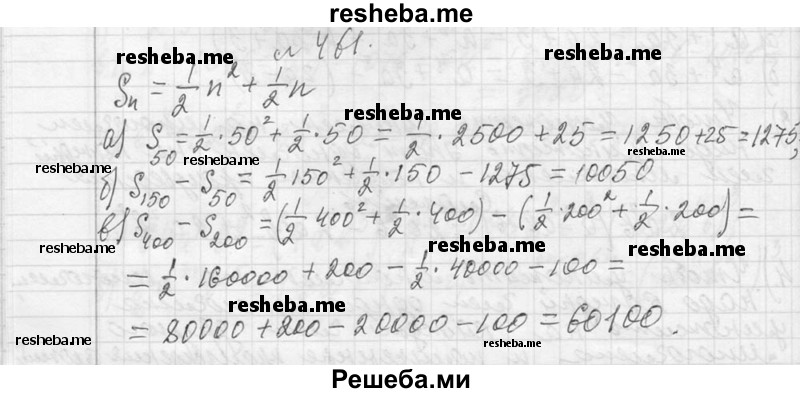 resheba.me
resheba.me № 461. resheba.me
Sₙ = 1/2 n² + 1/2 n
resheba.me
а) S₅₀ = 1/2 · 50² + 1/2 · 50 = 1/2 · 2500 + 25 = 1250 + 25 = 1275;
resheba.me resheba.me resheba.me
б) S₁₅₀ − S₅₀ = 1/2 150² + 1/2 · 150 − 1275 = 10050
в) S₄₀₀ − S₂₀₀ = (1/2 400² + 1/2 · 400) − (1/2 · 200² + 1/2 · 200) =
resheba.me resheba.me resheba.me
= 1/2 · 160000 + 200 − 1/2 · 40000 − 100 =
resheba.me
= 80000 + 200 − 20000 − 100 = 60100.
resheba.me resheba.me resheba.me
Решеба.ми